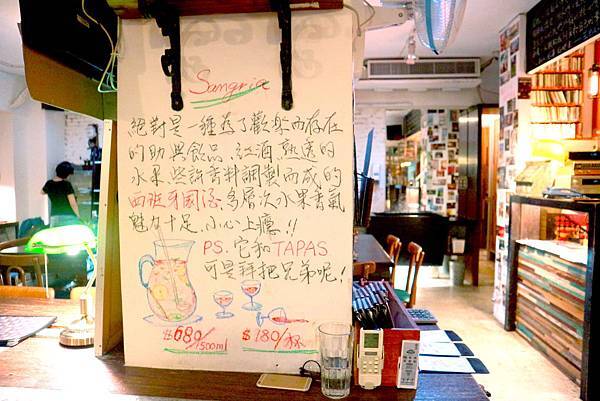 Sangria
絕對是一種為了歡樂而存在
的助興飲品,紅酒,熟透的
水果,些許香料調製而成的
西班牙國酒,多層次水果香氣
魅力十足,小心上癮!!
PS.它和TAPAS
可是拜把兄弟呢!
$680/1500ml
$180/杯